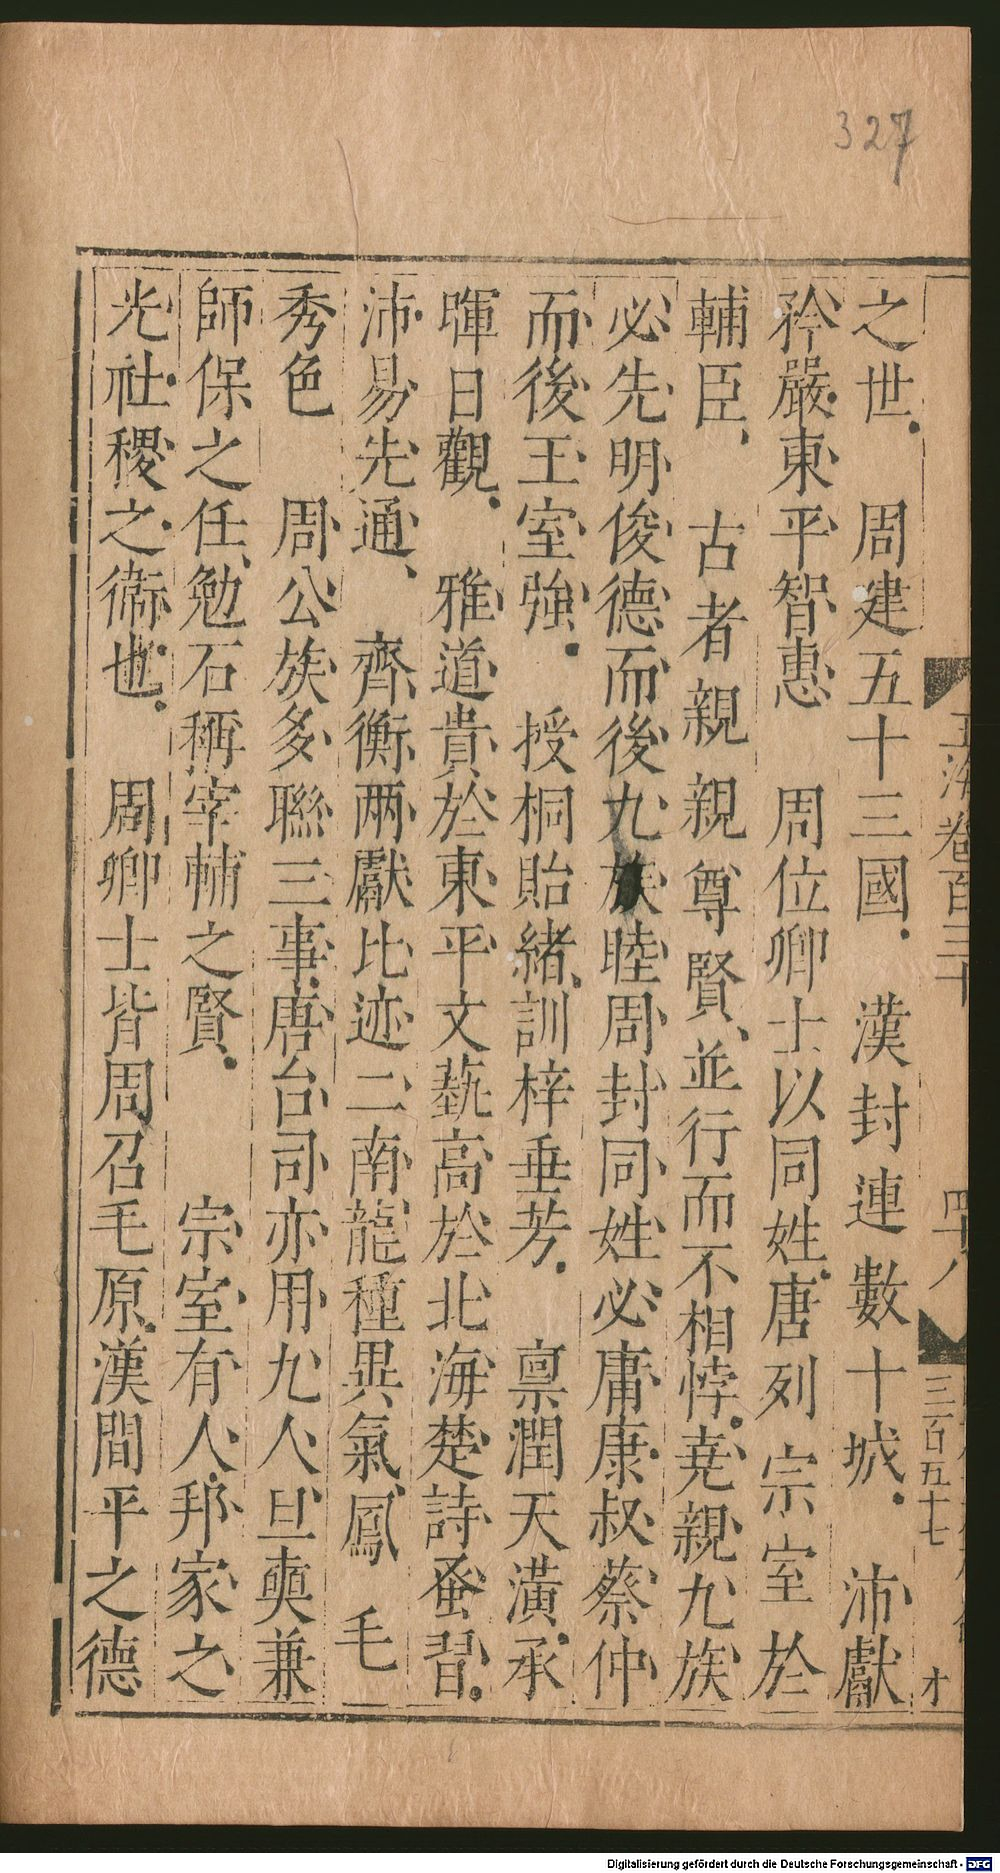 327
玉海卷百三十
四十八
三百五十七
之世 周建五十三國 漢封連數十城 沛獻
矜嚴東平智惠 周位卿士以同姓唐列宗室於
輔臣 古者親親尊賢並行而不相悖堯親九族
必先明俊德而後九族睦周封同姓必庸康叔蔡仲
而後王室強 授桐貽緒訓梓垂芳 禀潤天潢承
暉日觀 雅道貴於東平文藝高於北海楚詩蚤習
沛易先通 齊衡兩獻比迹二南龍種異氣鳳毛
秀色 周公族多聯三事唐台司亦用九人旦奭兼
師保之任勉石稱宰輔之賢 宗室有人邦家之
光社稷之衞也 周卿士皆周召毛原漢間平之德
Digitalisierung gefördert durch die Deutsche Forschungsgemeinschaft - DFG